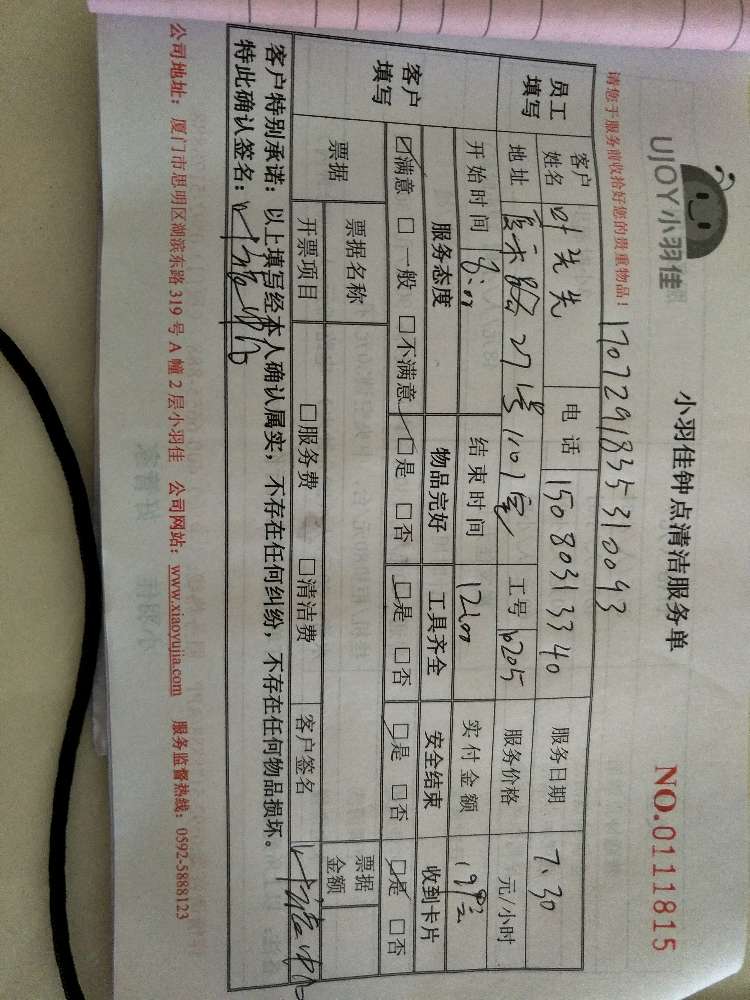 UJOY小羽佳
小羽佳钟点清洁服务单
NO.0111815
请您于服务前收拾好您的贵重物品！
1707291835310093
员工填写
客户姓名 叶先生 电话 15080313340 服务日期 7.30
地址 27号1107室 工号 服务价格 元/小时
开始时间 8:00 结束时间 12:00 实付金额
客户填写
服务态度 物品完好 工具齐全 安全结束 收到卡片
☑满意 □一般 □不满意 ☑是 □否 ☑是 □否 ☑是 □否 ☑是 □否
票据 票据名称 票据金额
开票项目 □服务费 □清洁费 客户签名
客户特别承诺：以上填写经本人确认属实，不存在任何纠纷，不存在任何物品损坏。
特此确认签名：
公司地址：厦门市思明区湖滨东路319号A幢2层小羽佳 公司网站：www.xiaoyujia.com 服务监督热线：0592-5888123